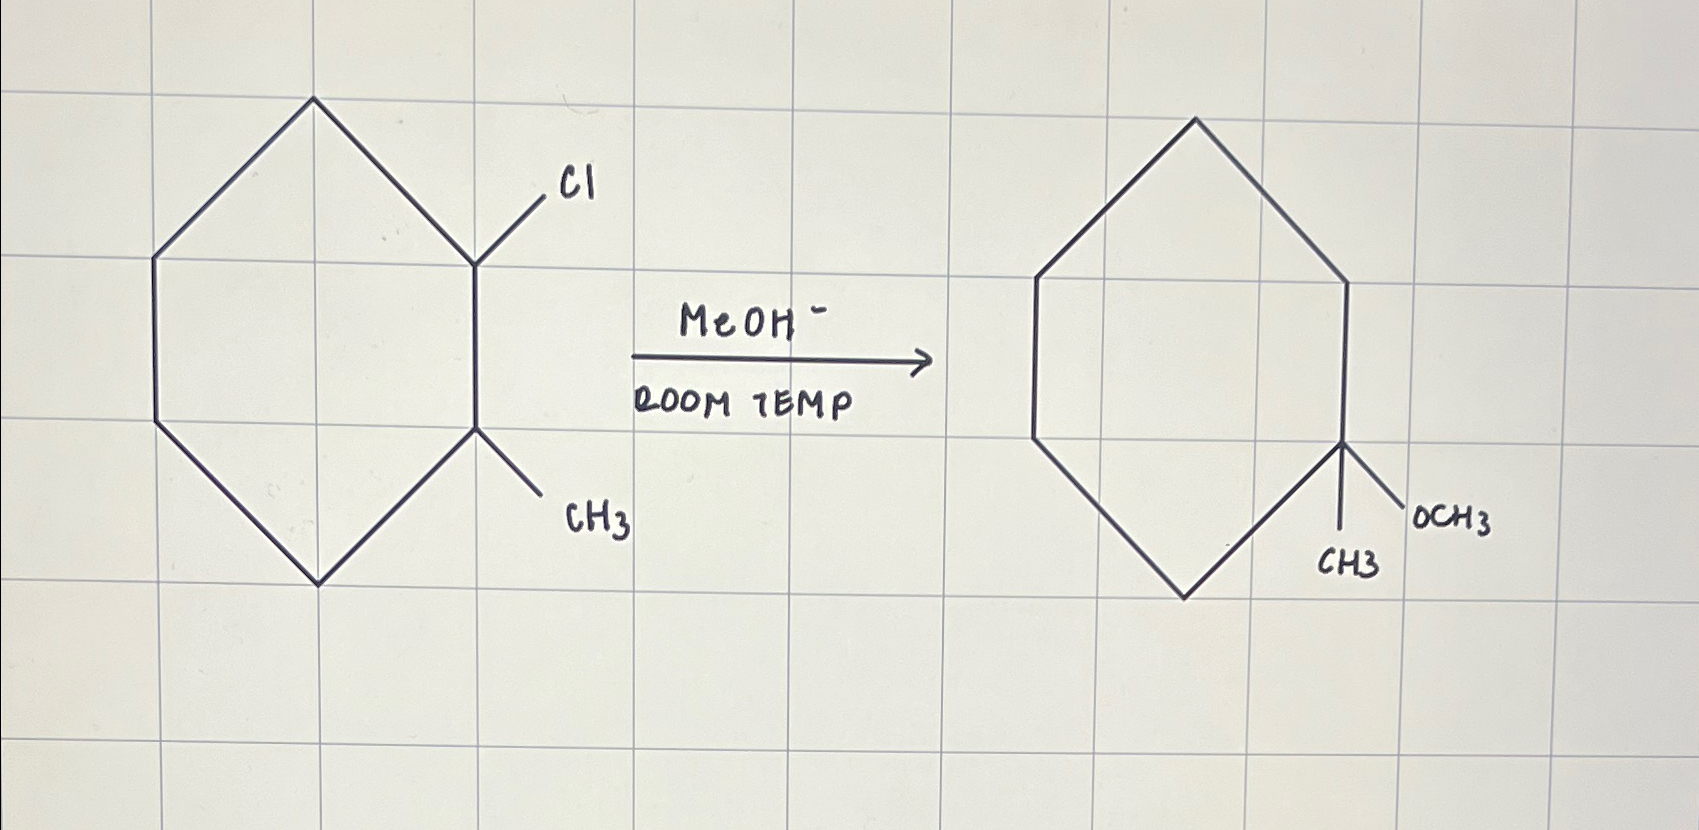 Cl
MeOH⁻
ROOM TEMP
CH3
OCH3
CH3